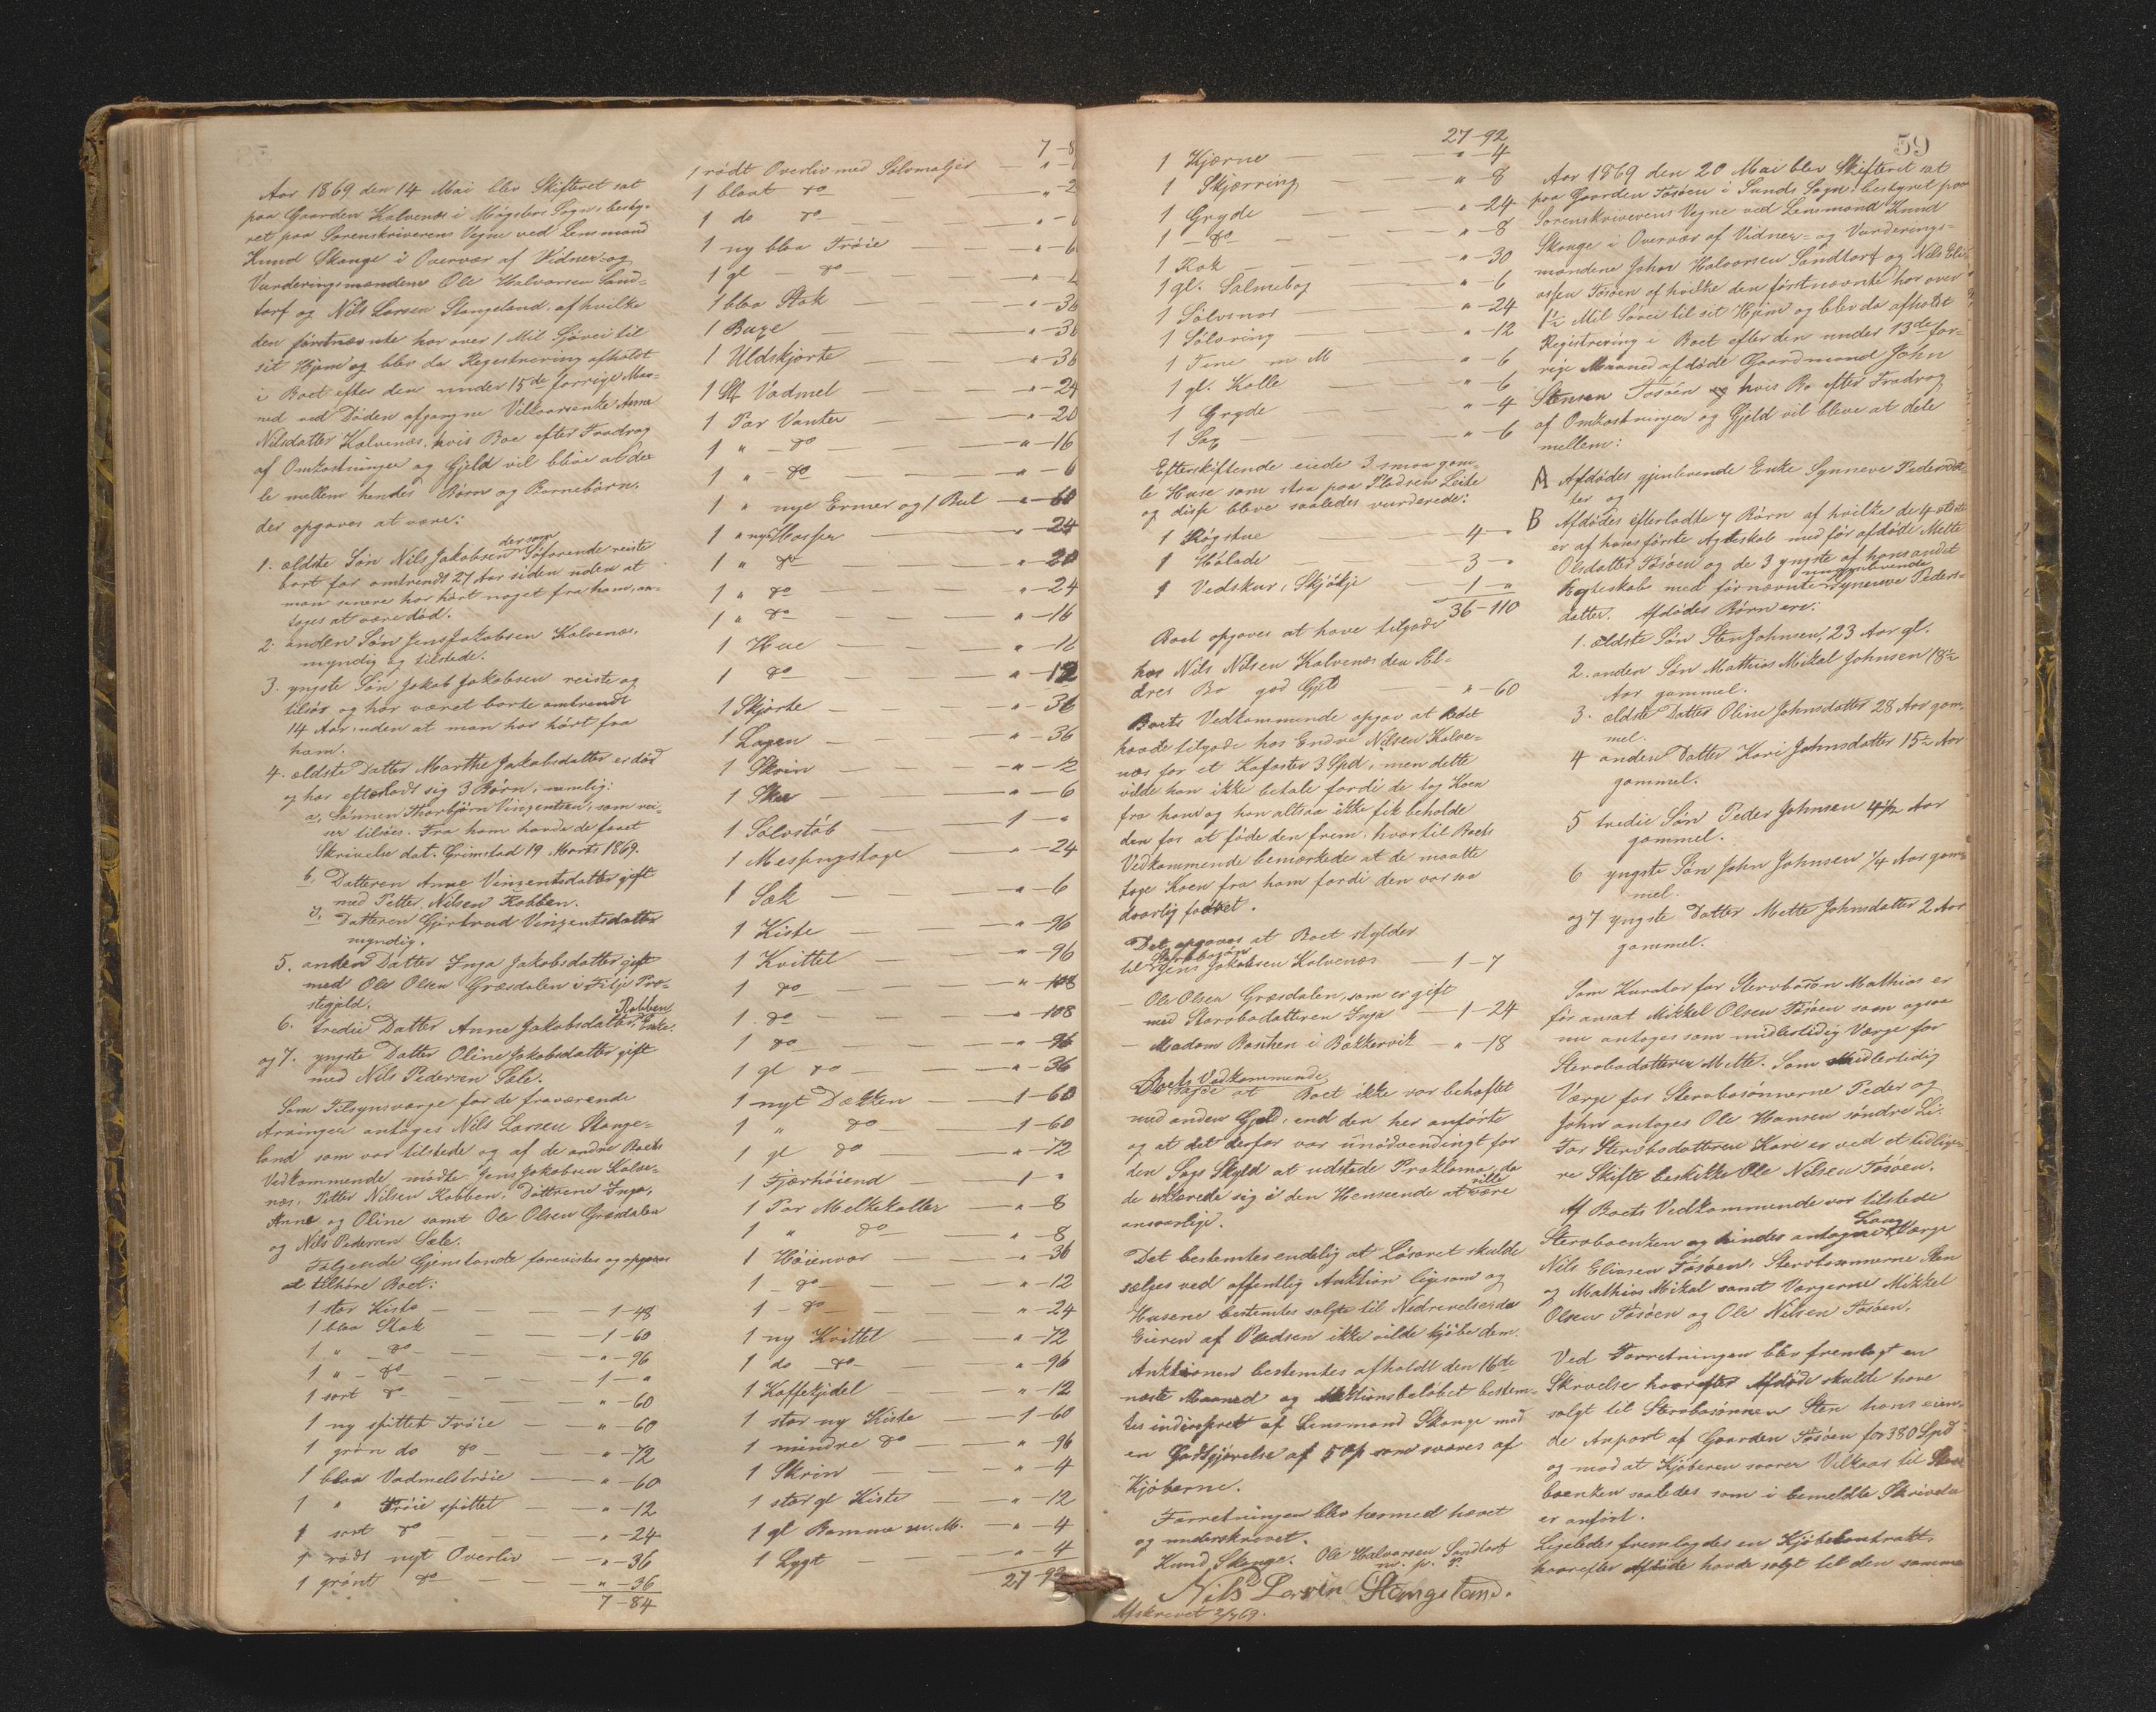 Aar 1869 den 14 Mai blev Skifteret sat
paa Gaarden Kalvenæs i Møgsters Sogn, besty-
ret paa Sorenskriverens Vegne ved Lensmand
Knud Skange i Overvær af Vidner- og
Vurderingsmændene Ole Halvorsen Sand-
torf og Nils Larsen Stangeland, af hvilke
den førstnævnte har over 1 Mil Sjøvei til
sit Hjem og blev da Registrering afholdt
i Boet efter den under 15de forrige Maa-
ned ved Døden afgangne Vilkaarsenke Anna
Nilsdatter Kalvenæs, hvis Boe efter Fradrag
af Omkostninger og Gjeld vil blive at de-
le mellem hendes Børn og Børnebørn,
der opgaves at være:
1. ældste Søn Nils Jakobsen der som Søfarende reiste
bort for omtrendt 27 Aar siden uden at
man senere har hørt noget fra ham, an-
tages at være død.
2. anden Søn Jens Jakobsen Kalvenæs,
myndig og tilstede.
3. yngste Søn Jakob Jakobsen reiste og
tilsøs og har været borte omtrendt
14 Aar, uden at man har hørt fra
ham.
4. ældste Datter Marthe Jakobsdatter er død
og har efterladt sig 3 Børn, nemlig:
a, Sønnen Thorbjørn Vinzentsen, som rei-
ser tilsøes. Fra ham havde de faaet
Skrivelse dat. Grimstad 19 Marts 1869.
b, Datteren Anne Vinzentsdatter gift
med Petter Nilsen Kobben.
c, Datteren Gjertrud Vinzentsdatter
myndig.
5. anden Datter Inga Jakobsdatter gift
med Ole Olsen Græsdalen i Fitje Præ-
stegjeld.
6. tredie Datter Anne Jakobsdatter Kobben, Enke.
og 7. yngste Datter Oline Jakobsdatter gift
med Nils Pedersen Sæle.
Som Tilsynsværge for de fraværende
Arvinger antoges Nils Larsen Stange-
land som var tilstede og af de andre Boets
Vedkommende mødte Jens Jakobsen Kalve-
næs, Petter Nilsen Kobben, Døttrene Inga,
Anne og Oline samt Ole Olsen Græsdalen
og Nils Pedersen Sæle.
Følgende Gjenstande forevistes og opgaves
at tilhøre Boet:
1 stor Kiste — 1-48
1 blaa Stak — 1-60
1 " do — "-96
1 " do — 1-"
1 sort do — "-60
1 ny spittet Trøie — "-60
1 grøn do do — "-72
1 blaa Vadmelstrøie — "-60
1 " Trøie spittet — "-12
1 sort do — "-24
1 rødt nyt Overliv — "-36
1 grønt do — "-36
7-84
7-8
1 rødt Overliv med Sølvmaljer — "-
1 blaat do — "-2
1 do do — "-
1 ny blaa Trøie — "-6
1 gl do — "-
1 blaa Stak — "-36
1 Buxe — "-36
1 Uldskjorte — "-36
1 St Vadmel — "-24
1 Par Vanter — "-20
1 " do — "-16
1 " do — "-6
1 " nye Ermer og 1 Bul — "-60
1 " nye Hosser — "-24
1 " do — "-20
1 " do — "-24
1 " do — "-16
1 Hue — "-12
1 do — "-12
1 Skjorte — "-36
1 Lagen — "-36
1 Skrin — "-12
1 Skee — "-6
1 Sølvstøb — 1-"
1 Messingstage — "-24
1 Sæk — "-6
1 Kiste — "-96
1 Kvittel — "-96
1 do — "-108
1 do — "-108
1 do — "-96
1 gl do — "-36
1 nyt Dækken — 1-60
1 " do — 1-60
1 gl do — "-72
1 Fjærhøiend — 1-"
1 Par Melkekoller — "-8
1 " do — "-8
1 Høienvar — "-36
1 do — "-12
1 do — "-24
1 ny Kvittel — "-72
1 do do — "-96
1 Kaffekjedel — "-12
1 stor ny Kiste — 1-60
1 mindre do — "-96
1 Skrin — "-4
1 stor gl Kiste — "-12
1 gl Bomme m. M. — "-4
1 Lygt — "-4
27-92
27-92
1 Kjærne — "-4
1 Skjærring — "-8
1 Gryde — "-24
1 do — "-8
1 Rok — "-30
1 gl. Salmebog — "-6
1 Sølvsnor — "-24
1 Sølvring — "-12
1 Tine m M — "-6
1 gl. Kolle — "-6
1 Gryde — "-4
1 Sax — "-6
Efterskiftende eiede 3 smaa gam-
le Huse som staa paa Pladsen Leite
og disse bleve saaledes vurderede:
1 Røgstue — 4-"
1 Hølade — 3-"
1 Vedskur, Skjøkje — 1-"
36-110
Boet opgaves at have tilgode
hos Nils Nilsen Kalvenæs den Æl-
dres Bo god Gjeld — "-60
Boets Vedkommende opgav at Boet
havde tilgode hos Endre Nilsen Kalve-
næs for et Kofoster 3 Spd, men dette
vilde han ikke betale fordi de tog Koen
fra ham og han altsaa ikke fik beholde
den for at føde den frem, hvortil Boets
Vedkommende bemærkede at de maatte
tage Koen fra ham fordi den var saa
daarlig fodret.
Det opgaves at Boet skylder
til Stervbosøn Jens Jakobsen Kalvenæs — 1-7
— Ole Olsen Græsdalen, som er gift
med Stervbodatteren Inga — 1-24
— Madam Banken i Bækkervik — "-18
Boets Vedkommende
at Boet ikke var behæftet
med anden Gjeld, end den her anførte
og at det derfor var unødvendingt for
den Sags Skyld at udstede Proklama, da
de erklærede sig i den Henseende at ville være
ansvarlige.
Det bestemtes endelig at Løsøret skulde
sælges ved offentlig Auktion ligesom og
Husene bestemtes solgte til Nedrivelse, da
Eieren af Pladsen ikke vilde kjøbe dem.
Auktionen bestemtes afholdt den 16de
næste Maaned og Auktionsbeløbet bestem-
tes inddrevet af Lensmand Skange mod
en Godtgjørelse af 5 op som svares af
Kjøberne.
Forretningen blev hermed hævet
og underskrevet.
Knud Skange. Ole Halvorsen Sandtorf
m. p. P.
Nils Larsen Stangeland.
Afskrevet 2/7 69.
59
Aar 1869 den 20 Mai blev Skifteret sat
paa Gaarden Tøsøen i Sunds Sogn, bestyret paa
Sorenskriverens Vegne ved Lensmand Knud
Skange i Overvær af Vidner- og Vurderings-
mændene Johan Halvorsen Sandtorf og Nils Eli-
assen Tøsøen af hvilke den førstnævnte har over
1½ Mil Søvei til sit Hjem og blev da afholdt
Registrering i Boet efter den under 13de for-
rige Maaned afdøde Gaardmand John
Stensen Tøsøen og hvis Bo efter Fradrag
af Omkostninger og Gjeld vil blive at dele
mellem:
A Afdødes gjenlevende Enke Synneve Pedersdat-
ter og
B Afdødes efterladte 7 Børn af hvilke de 4 ældste
er af hans første Ægteskab med før afdøde Mette
Olsdatter Tøsøen og de 3 yngste af hans andet
Ægteskab med førnævnte nugjenlevende Synneve Peders-
datter. Afdødes Børn ere:
1. ældste Søn Sten Johnsen, 23 Aar gl.
2. anden Søn Mathias Mikal Johnsen 18½
Aar gammel.
3. ældste Datter Oline Johnsdatter 28 Aar gam-
mel.
4 anden Datter Kari Johnsdatter 15½ Aar
gammel.
5 tredie Søn Peder Johnsen 4½ Aar
gammel.
6 yngste Søn John Johnsen ¼ Aar gam-
mel.
og 7 yngste Datter Mette Johnsdatter 2 Aar
gammel.
Som Kurator for Stervbosøn Mathias er
før ansat Mikkel Olsen Tøsøen som ogsaa
nu antoges som midlertidig Værge for
Stervbodatteren Mette. Som Midlertidig
Værge for Stervbosønnerne Peder og
John antoges Ole Hansen søndre Li.
For Stervbodatteren Kari er ved et tidlige-
re Skifte beskikket Ole Nilsen Tøsøen.
Af Boets Vedkommende var tilstede
Stervboenken og hindes antagne Laug Værge
Nils Eliasen Tøsøen, Stervbosønnerne Sten
og Mathias Mikal samt Værgerne Mikkel
Olsen Tøsøen og Ole Nilsen Tøsøen.
Ved Forretningen blev fremlagt en
Skrivelse hvorefter Afdøde skulde have
solgt til Stervbosønnen Sten hans eien-
de Anpart af Gaarden Tøsøen for 380 Spd
og mod at Kjøberen svarer Vilkaar til Sterv-
boenken saaledes som i bemeldte Skrivelse
er anført.
Ligeledes fremlagdes en Kjøbekontrakt,
hvorefter Afdøde havde solgt til den samme